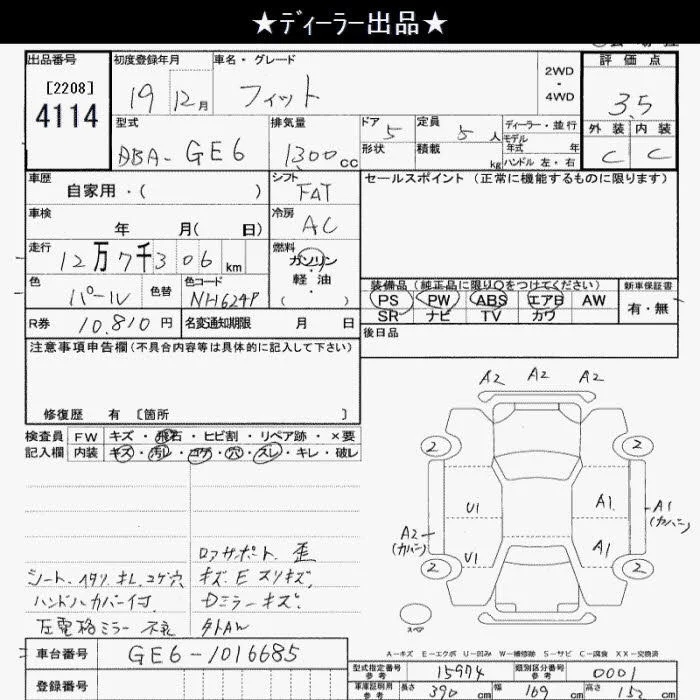 ★ディーラー出品★
出品番号
[2208]
4114
初度登録年月
19 12月
車名・グレード
フィット
2WD
・
4WD
評 価 点
3.5
外 装 内 装
C C
型式
DBA-GE6
排気量
1300cc
ドア 5
形状
定員 5 人
積載 kg
ディーラー・並 行
モデル
年式 年
ハンドル 左・右
車歴
自家用・( )
シフト
FAT
セールスポイント (正常に機能するものに限ります)
車検
年 月( 日)
冷房
AC
走行
12万7千306 km
燃料
ガソリン
・
軽 油
( ・ )
色
パール
色替
色コード
NH624P
装備品 (純正品に限り〇をつけてください)
PS PW ABS エアB AW
SR ナビ TV カワ
新車保証書
有・無
R券 10,810 円
名変通知期限 月 日
後日品
注意事項申告欄 (不具合内容等は具体的に記入して下さい)
修復歴 有 [箇所 ]
検査員 FW キズ・飛石・ヒビ割・リペア跡・×要
記入欄 内装 キズ・汚レ・コゲ・穴・スレ・キレ・破レ
ロアサポート 歪
シート、イタリ キレ コゲ穴
キズ、E スリキズ
ハンドルカバー付
Dミラーキズ
左電格ミラー 不良
外AW
A2 A2 A2
2 2
U1 A1
A2
(カバー)
A1
(カバー)
U1 A1
2 2
スペア
A-キズ E-エクボ U-凹み W-補修跡 S-サビ C-腐食 XX-交換済
車台番号 GE6-1016685
登録番号
型式指定番号
参考
15974
類別区分番号
参考
0001
車庫証明用
参考
長さ 390 cm 幅 169 cm 高さ 152 cm